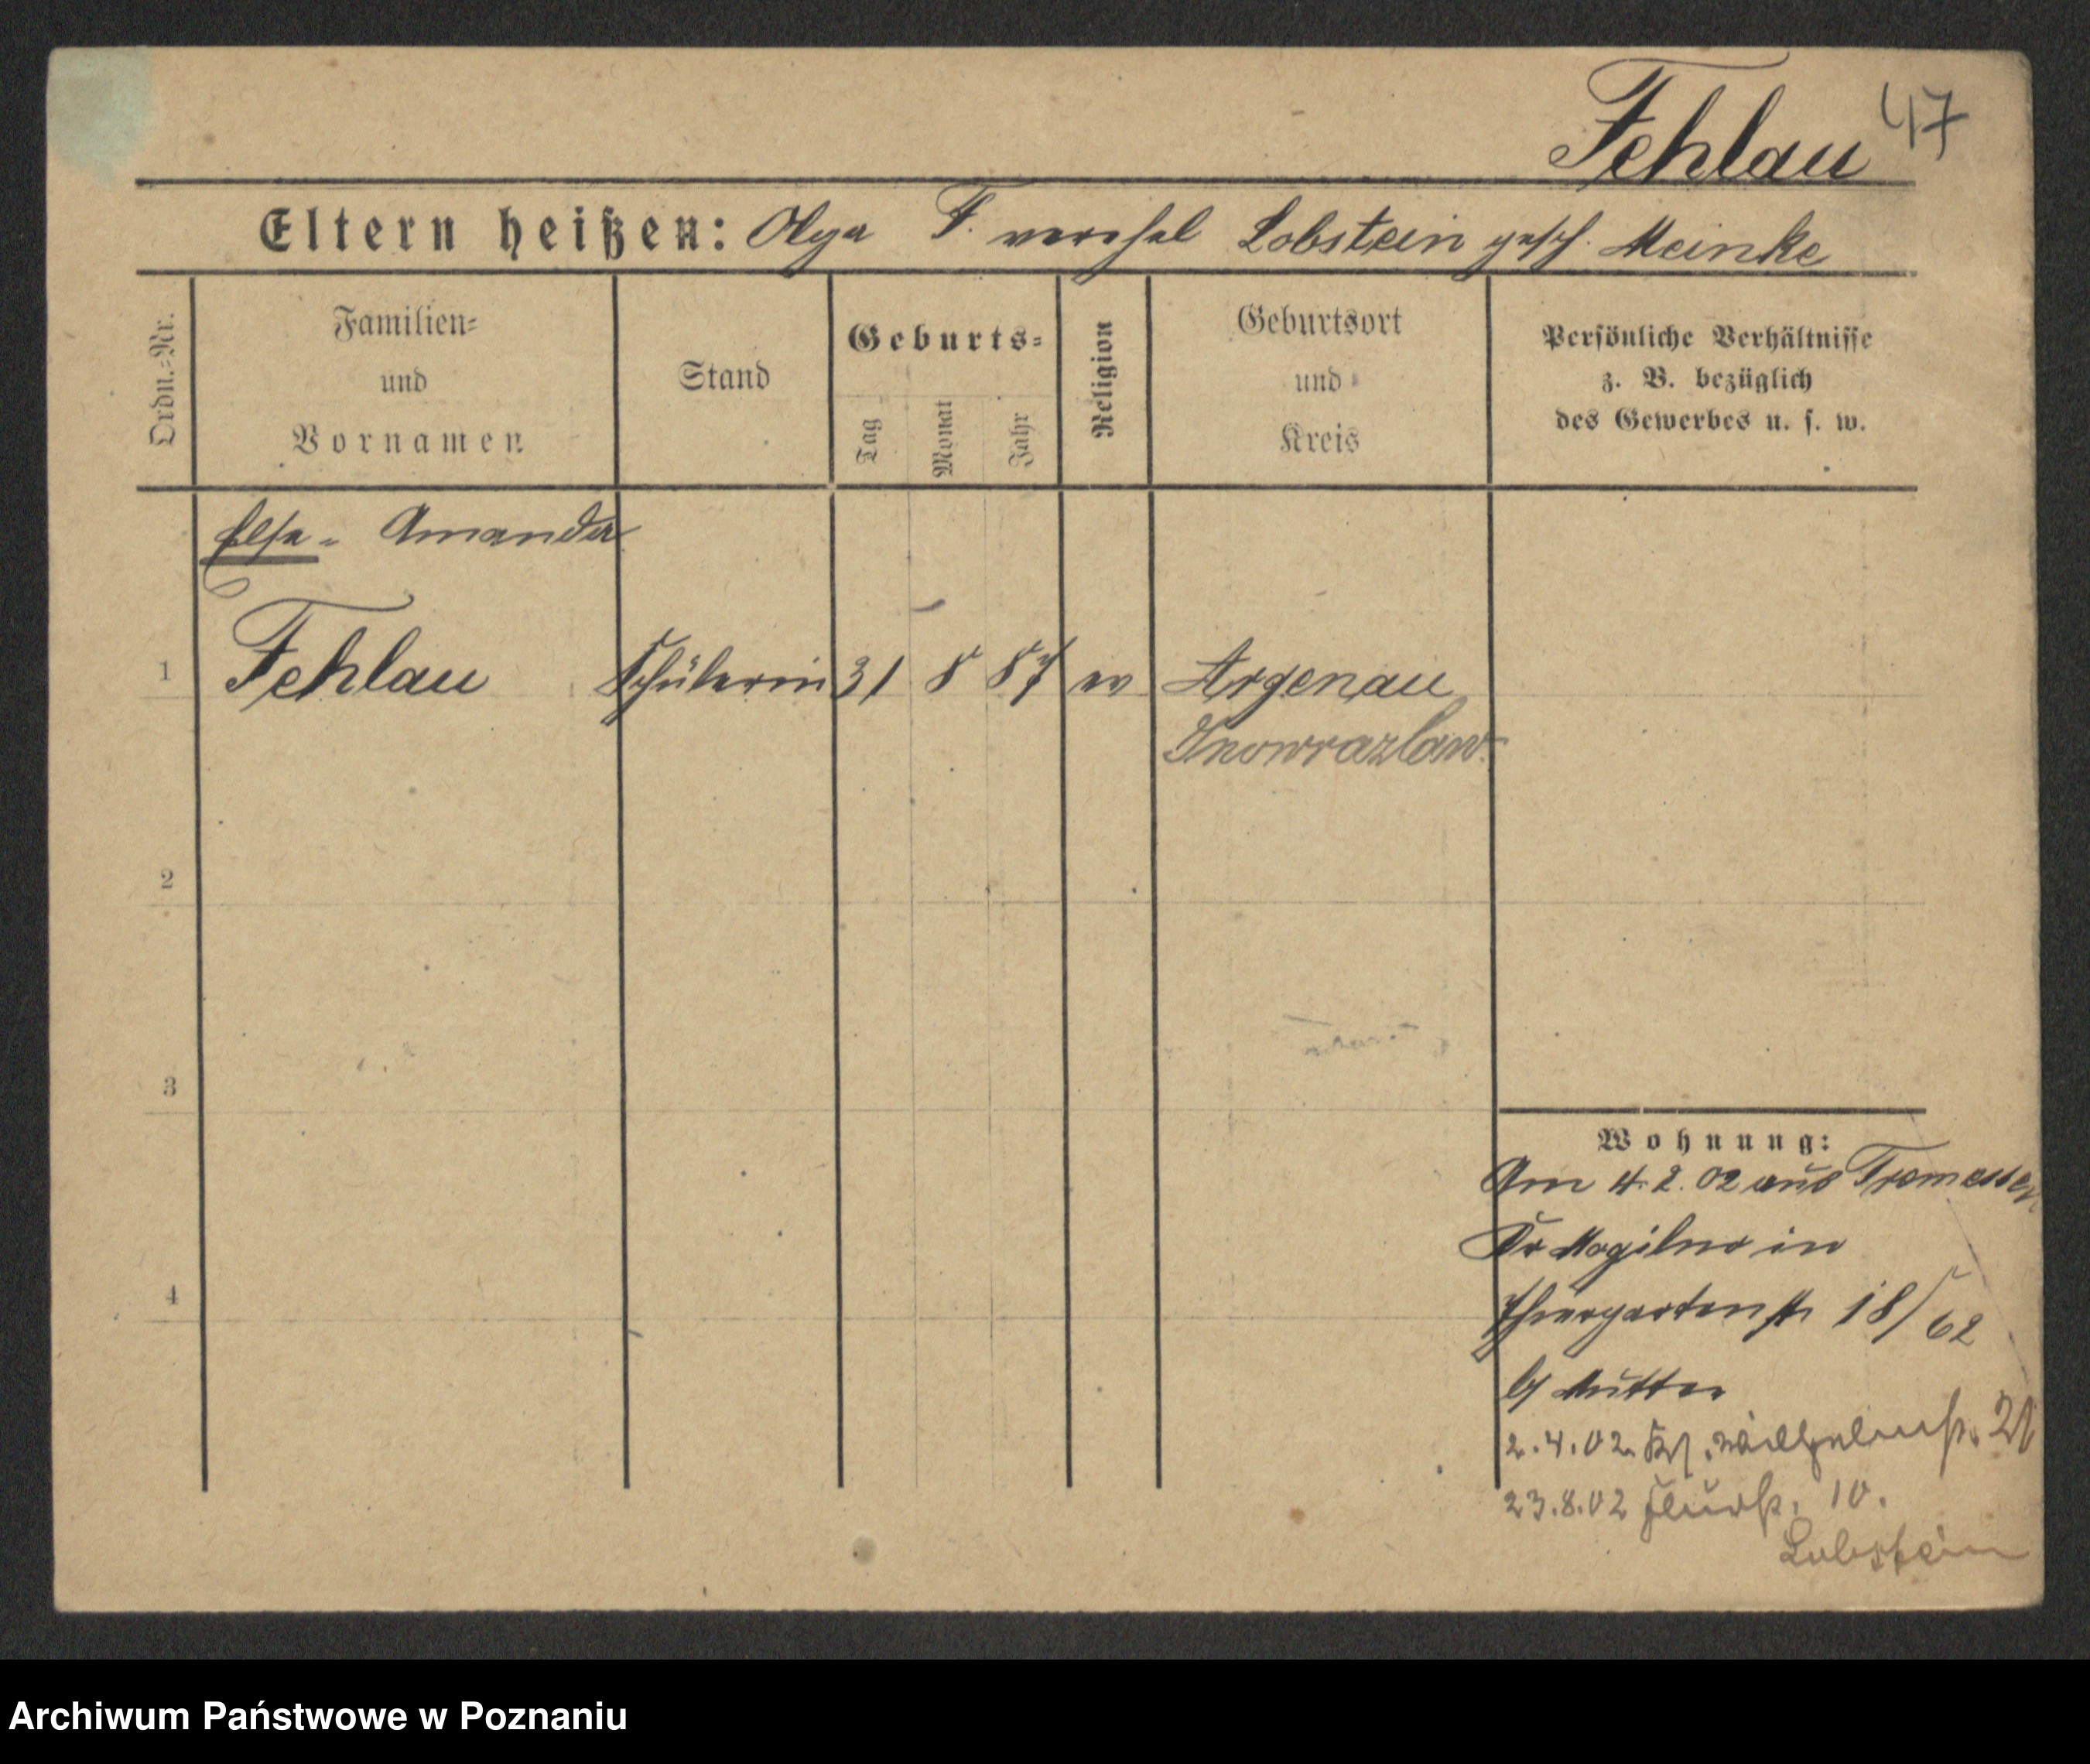 Fehlau 47
Eltern heißen: Olga F. verehel Lobstein gesch. Meinke
Ordn.-Nr.
Familien-
und
Vornamen
Stand
Geburts-
Tag
Monat
Jahr
Religion
Geburtsort
und
Kreis
Persönliche Verhältnisse
z. B. bezüglich
des Gewerbes u. s. w.
Else - Amanda
1 Fehlau Schülerin 31 8 87 ev Argenau
Inowrazlaw.
2
3
4
Wohnung:
Am 4. 2. 02 aus Tremessen
Kr Mogilno in
Thiergartenstr 18/62
b/ Mutter
2.4.02 Wilhelmstr. 21
23.8.02 10.
Lobstein
Archiwum Państwowe w Poznaniu